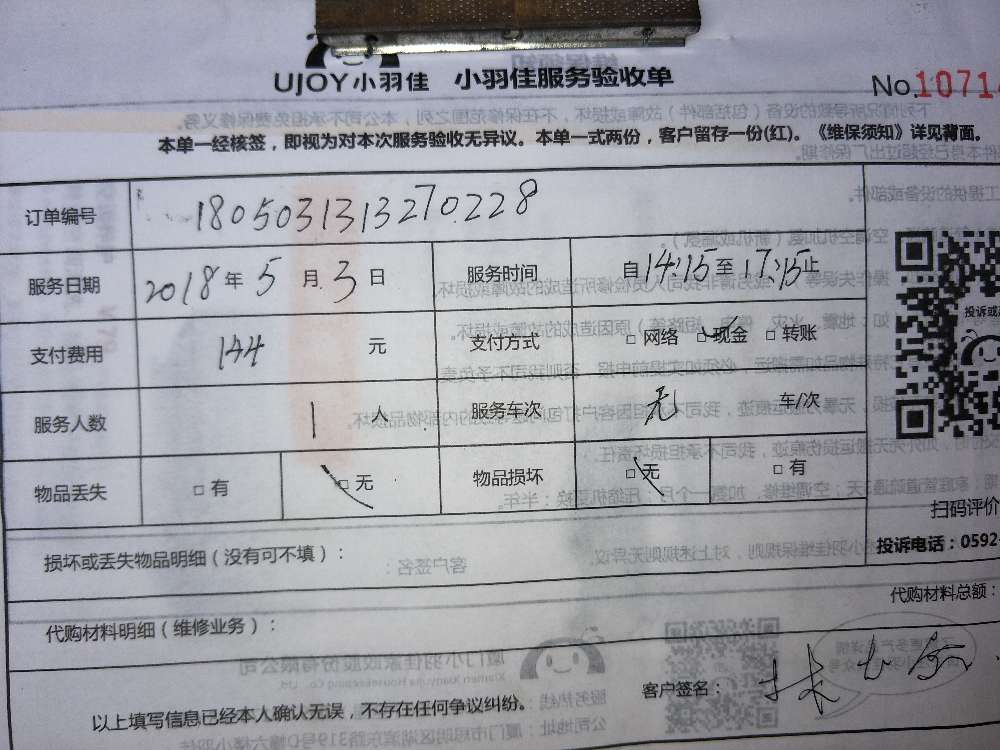 UJOY小羽佳 小羽佳服务验收单
No.1071
本单一经核签，即视为对本次服务验收无异议。本单一式两份，客户留存一份(红)。《维保须知》详见背面。
订单编号 1805031313270228
服务日期 2018年5月3日 服务时间 自14:15至17:15止
支付费用 144 元 支付方式 □网络 □现金 □转账
服务人数 1 人 服务车次 无 车/次
物品丢失 □有 □无 物品损坏 □无 □有
投诉或
扫码评价
投诉电话：0592-
损坏或丢失物品明细（没有可不填）：
代购材料总额：
代购材料明细（维修业务）：
客户签名：
以上填写信息已经本人确认无误，不存在任何争议纠纷。